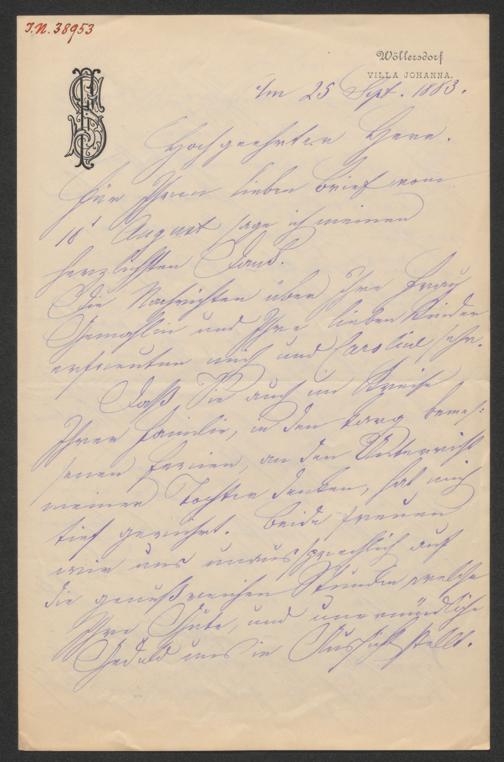 I.N. 38953
Wöllersdorf
VILLA JOHANNA.
Am 25 Sept. 1883.
Hochgeehrter Herr.
Für Ihren lieben Brief vom
16t August sage ich meinen
herzlichsten Dank.
Die Nachrichten über Ihre Frau
Gemahlin und Ihre lieben Kinder
erfreuten mich und Caroline sehr.
Daß Sie auch im Kreise
Ihrer Familie, in den karg bemes-
senen Ferien, an den Unterricht
meiner Tochter denken, hat mich
tief gerührt. Beide freuen
wir uns unaussprechlich auf
die genußreichen Stunden welche
Ihre Güte, und unermüdliche
Geduld uns in Aussicht stellt.